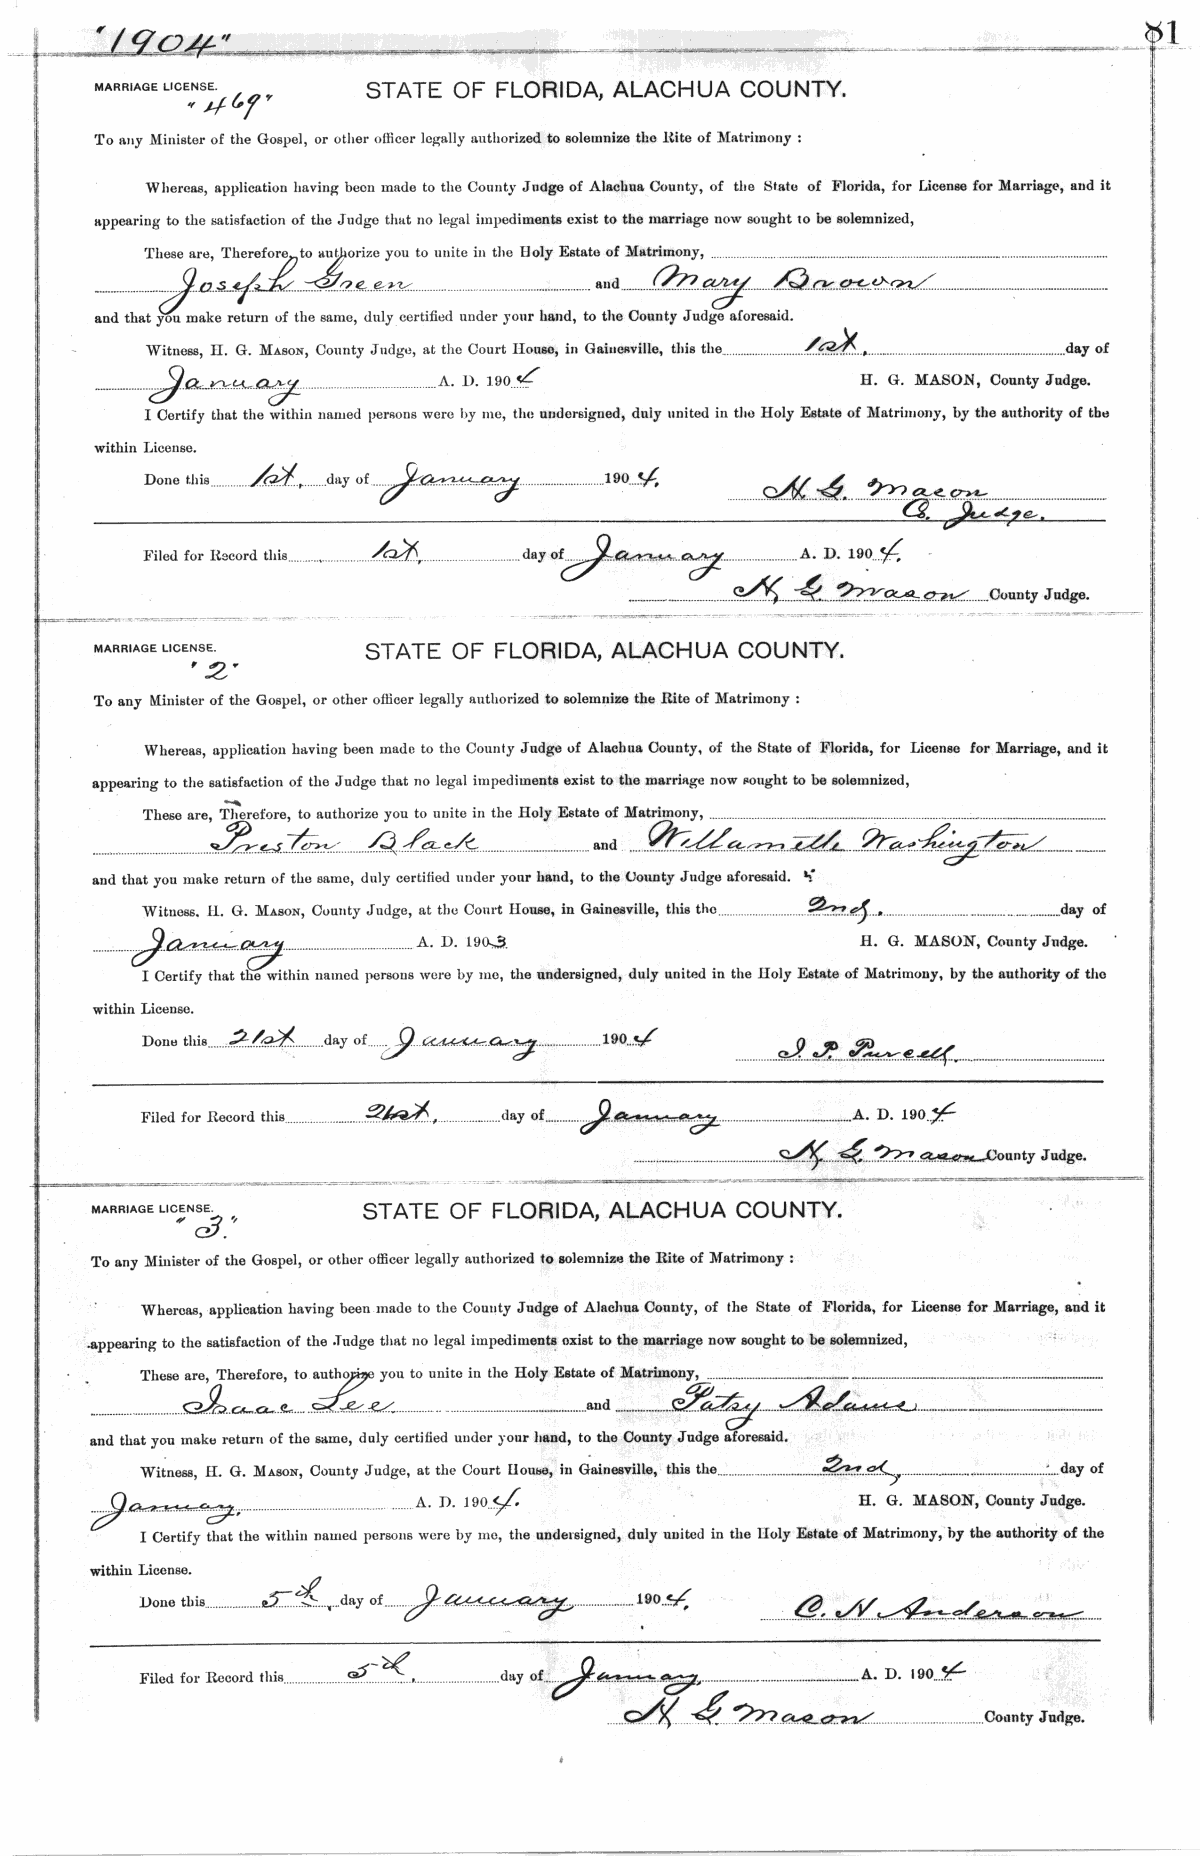 "1904"
81
MARRIAGE LICENSE.
STATE OF FLORIDA, ALACHUA COUNTY.
"469"
To any Minister of the Gospel, or other officer legally authorized to solemnize the Rite of Matrimony :
Whereas, application having been made to the County Judge of Alachua County, of the State of Florida, for License for Marriage, and it
appearing to the satisfaction of the Judge that no legal impediments exist to the marriage now sought to be solemnized,
These are, Therefore, to authorize you to unite in the Holy Estate of Matrimony,
Joseph Green and Mary Brown
and that you make return of the same, duly certified under your hand, to the County Judge aforesaid.
Witness, H. G. MASON, County Judge, at the Court House, in Gainesville, this the 1st, day of
January A. D. 1904 H. G. MASON, County Judge.
I Certify that the within named persons were by me, the undersigned, duly united in the Holy Estate of Matrimony, by the authority of the
within License.
Done this 1st, day of January 1904. H. G. Mason
Co. Judge.
Filed for Record this 1st, day of January A. D. 1904.
H. G. Mason County Judge.
MARRIAGE LICENSE.
STATE OF FLORIDA, ALACHUA COUNTY.
"2"
To any Minister of the Gospel, or other officer legally authorized to solemnize the Rite of Matrimony :
Whereas, application having been made to the County Judge of Alachua County, of the State of Florida, for License for Marriage, and it
appearing to the satisfaction of the Judge that no legal impediments exist to the marriage now sought to be solemnized,
These are, Therefore, to authorize you to unite in the Holy Estate of Matrimony,
Preston Black and Willamette Washington
and that you make return of the same, duly certified under your hand, to the County Judge aforesaid.
Witness, H. G. MASON, County Judge, at the Court House, in Gainesville, this the 2nd, day of
January A. D. 1903 H. G. MASON, County Judge.
I Certify that the within named persons were by me, the undersigned, duly united in the Holy Estate of Matrimony, by the authority of the
within License.
Done this 21st day of January 1904 I. P. Purcell.
Filed for Record this 21st, day of January A. D. 1904
H. G. Mason County Judge.
MARRIAGE LICENSE.
STATE OF FLORIDA, ALACHUA COUNTY.
"3."
To any Minister of the Gospel, or other officer legally authorized to solemnize the Rite of Matrimony :
Whereas, application having been made to the County Judge of Alachua County, of the State of Florida, for License for Marriage, and it
appearing to the satisfaction of the Judge that no legal impediments exist to the marriage now sought to be solemnized,
These are, Therefore, to authorize you to unite in the Holy Estate of Matrimony,
Isaac Lee and Patsy Adams
and that you make return of the same, duly certified under your hand, to the County Judge aforesaid.
Witness, H. G. MASON, County Judge, at the Court House, in Gainesville, this the 2nd, day of
January, A. D. 1904. H. G. MASON, County Judge.
I Certify that the within named persons were by me, the undersigned, duly united in the Holy Estate of Matrimony, by the authority of the
within License.
Done this 5th, day of January 1904. C. H Anderson
Filed for Record this 5th, day of January, A. D. 1904
H. G. Mason County Judge.